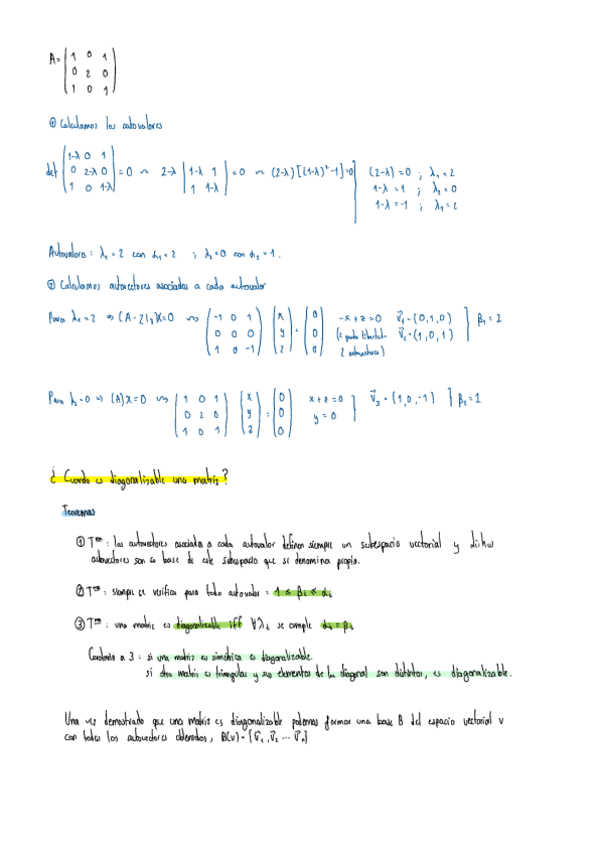 A = ( 1 0 1
0 2 0
1 0 1 )
① Calculamos los autovalores
det | 1-λ 0 1 | = 0 ~ 2-λ | 1-λ 1 | = 0 ~ (2-λ)[(1-λ)²-1]=0 (2-λ)=0 ; λ₁=2
| 0 2-λ 0 | | 1 1-λ | 1-λ=1 ; λ₂=0
| 1 0 1-λ | 1-λ=-1 ; λ₁=2
Autovalores: λ₁=2 con α₁=2 ; λ₂=0 con α₂=1.
② Calculamos autovectores asociados a cada autovalor
Para λ₁=2 ⇒ (A-2I₃)X=0 ⇝ ( -1 0 1 ) ( x ) = ( 0 ) -x+z=0 v⃗₁=(0,1,0) } β₁=2
( 0 0 0 ) ( y ) ( 0 ) (2 grados libertad- v⃗₂=(1,0,1)
( 1 0 -1 ) ( z ) ( 0 ) 2 autovectores)
Para λ₂=0 ⇒ (A)X=0 ⇝ ( 1 0 1 ) ( x ) = ( 0 ) x+z=0 v⃗₃=(1,0,-1) } β₂=1
( 0 2 0 ) ( y ) ( 0 ) y=0
( 1 0 1 ) ( z ) ( 0 )
¿ Cuando es diagonalizable una matriz?
Teoremas
① Tᵐᵃ: los autovectores asociados a cada autovalor definen siempre un subespacio vectorial y dichos
autovectores son la base de este subespacio que se denomina propio.
② Tᵐᵃ: siempre se verifica para todo autovalor: 1 ≤ βᵢ ≤ αᵢ
③ Tᵐᵃ: una matriz es diagonalizable iff ∀λᵢ se cumple αᵢ = βᵢ
Corolario a 3: si una matriz es simétrica es diagonalizable.
si otra matriz es triangular y sus elementos de la diagonal son distintos, es diagonalizable.
Una vez demostrado que una matriz es diagonalizable podemos formar una base B del espacio vectorial V
con todos los autovectores obtenidos, B(V)={v⃗₁,v⃗₂...v⃗ₙ}